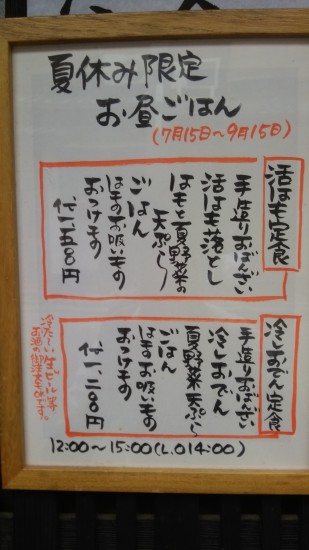 夏休み限定
お昼ごはん
(7月15日〜9月15日)
活はも定食
手造りおばんざい
活はも落とし
はもと夏野菜の
天ぷら
ごはん
はものお吸いもの
おつけもの
代一、五〇〇円
冷しおでん定食
手造りおばんざい
冷しおでん
夏野菜天ぷら
ごはん
はものお吸いもの
おつけもの
代一、二〇〇円
冷たーい生ビール等
お酒の御注文もOKです。
12:00〜15:00(L.O14:00)